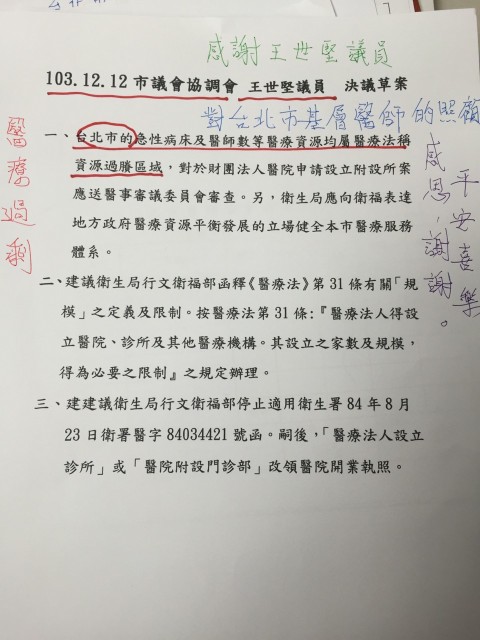 感謝王世堅議員
103.12.12市議會協調會 王世堅議員 決議草案
對台北市基層醫師的照顧
感恩,謝謝。
平安喜樂
醫療過剩
一、台北市的急性病床及醫師數等醫療資源均屬醫療法稱
資源過賸區域,對於財團法人醫院申請設立附設所案
應送醫事審議委員會審查。另,衛生局應向衛福表達
地方政府醫療資源平衡發展的立場健全本市醫療服務
體系。
二、建議衛生局行文衛福部函釋《醫療法》第31條有關「規
模」之定義及限制。按醫療法第31條:『醫療法人得設
立醫院、診所及其他醫療機構。其設立之家數及規模,
得為必要之限制』之規定辦理。
三、建建議衛生局行文衛福部停止適用衛生署84年8月
23日衛署醫字84034421號函。嗣後,「醫療法人設立
診所」或「醫院附設門診部」改領醫院開業執照。